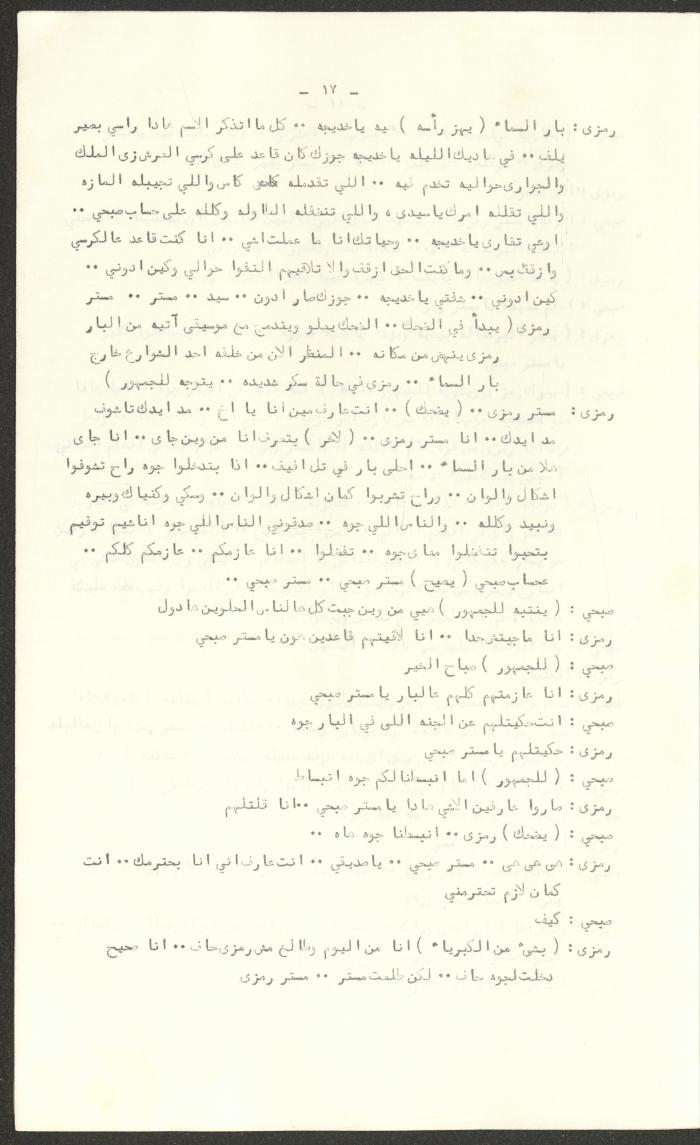 - ١٧ -
رمزى : بار السماء ( يهز رأسه ) هيه ياخديجه .. كل ما اتذكر الاسم هادا راسي بصير
يلف .. في هاديك الليله ياخديجه جوزك كان قاعد على كرسي العرش زى الملك
والجوارى حواليه تخدم فيه .. اللي تقدمله كاس واللي تجيبله المازه
واللي تقلله امرك ياسيدى ، واللي تنضفله الطاوله وكلله على حساب صبحي ..
اوعي تغارى ياخديجه .. وحياتك انا ما عملت اشي .. انا كنت قاعد عالكرسي
وازقف بس .. وما كنت الحق ازقف والا تلاقيهم التفوا حوالي وكين ادوني ..
كين ادوني .. شفتي ياخديجه .. جوزك صار ادون .. سيد .. مستر .. مستر
رمزى ( يبدأ في الضحك .. الضحك يعلو ويندمج مع موسيقى آتيه من البار
رمزى ينهض من مكانه .. المنظر الان من خلفه احد الشوارع خارج
بار السماء .. رمزى في حالة سكر شديده .. يتوجه للجمهور )
رمزى : مستر رمزى .. ( يضحك ) .. انت عارف مين انا يا اخ .. مد ايدك تاشوف
مد ايدك .. انا مستر رمزى .. ( لاخر ) بتعرف انا من وين جاى .. انا جاى
هلا من بار السماء .. احلى بار في تل ابيف .. اذا بتدخلوا جوه راح تشوفوا
اشكال والوان .. وراح تشربوا كمان اشكال والوان .. وسكي وكنياك وبيره
ونبيد وكلله .. والناس اللي جوه .. صدقوني الناس اللي جوه اناشيم توفيم
بتحبوا تتفضلوا معاى جوه .. تفضلوا .. انا عازمكم .. عازمكم كلكم ..
عحساب صبحي ( يصيح ) مستر صبحي .. مستر صبحي ..
صبحي : ( ينتبه للجمهور ) هيي من وين جبت كل هالناس الحلوين هادول
رمزى : انا ماجبتش حدا .. انا لاقيتهم قاعدين هون يا مستر صبحي
صبحي : ( للجمهور ) صباح الخير
رمزى : انا عازمتهم كلهم عالبار يا مستر صبحي
صبحي : انت حكيتلهم عن الجنه اللى في البار جوه
رمزى : حكيتلهم يا مستر صبحي
صبحي : ( للجمهور ) اما انبسطنالكم جوه انبساط
رمزى : صاروا عارفين الاشي هادا يا مستر صبحي .. انا قلتلهم
صبحي : ( يضحك ) رمزى .. انبسطنا جوه هاه ..
رمزى : هى هى هى .. مستر صبحي .. ياصديقي .. انت عارف اني انا بحترمك .. انت
كمان لازم تحترمني
صبحي : كيف
رمزى : ( بشيء من الكبرياء ) انا من اليوم وطالع مش رمزى حاف .. انا صحيح
دخلت لجوه حاف .. لكن طلعت مستر .. مستر رمزى